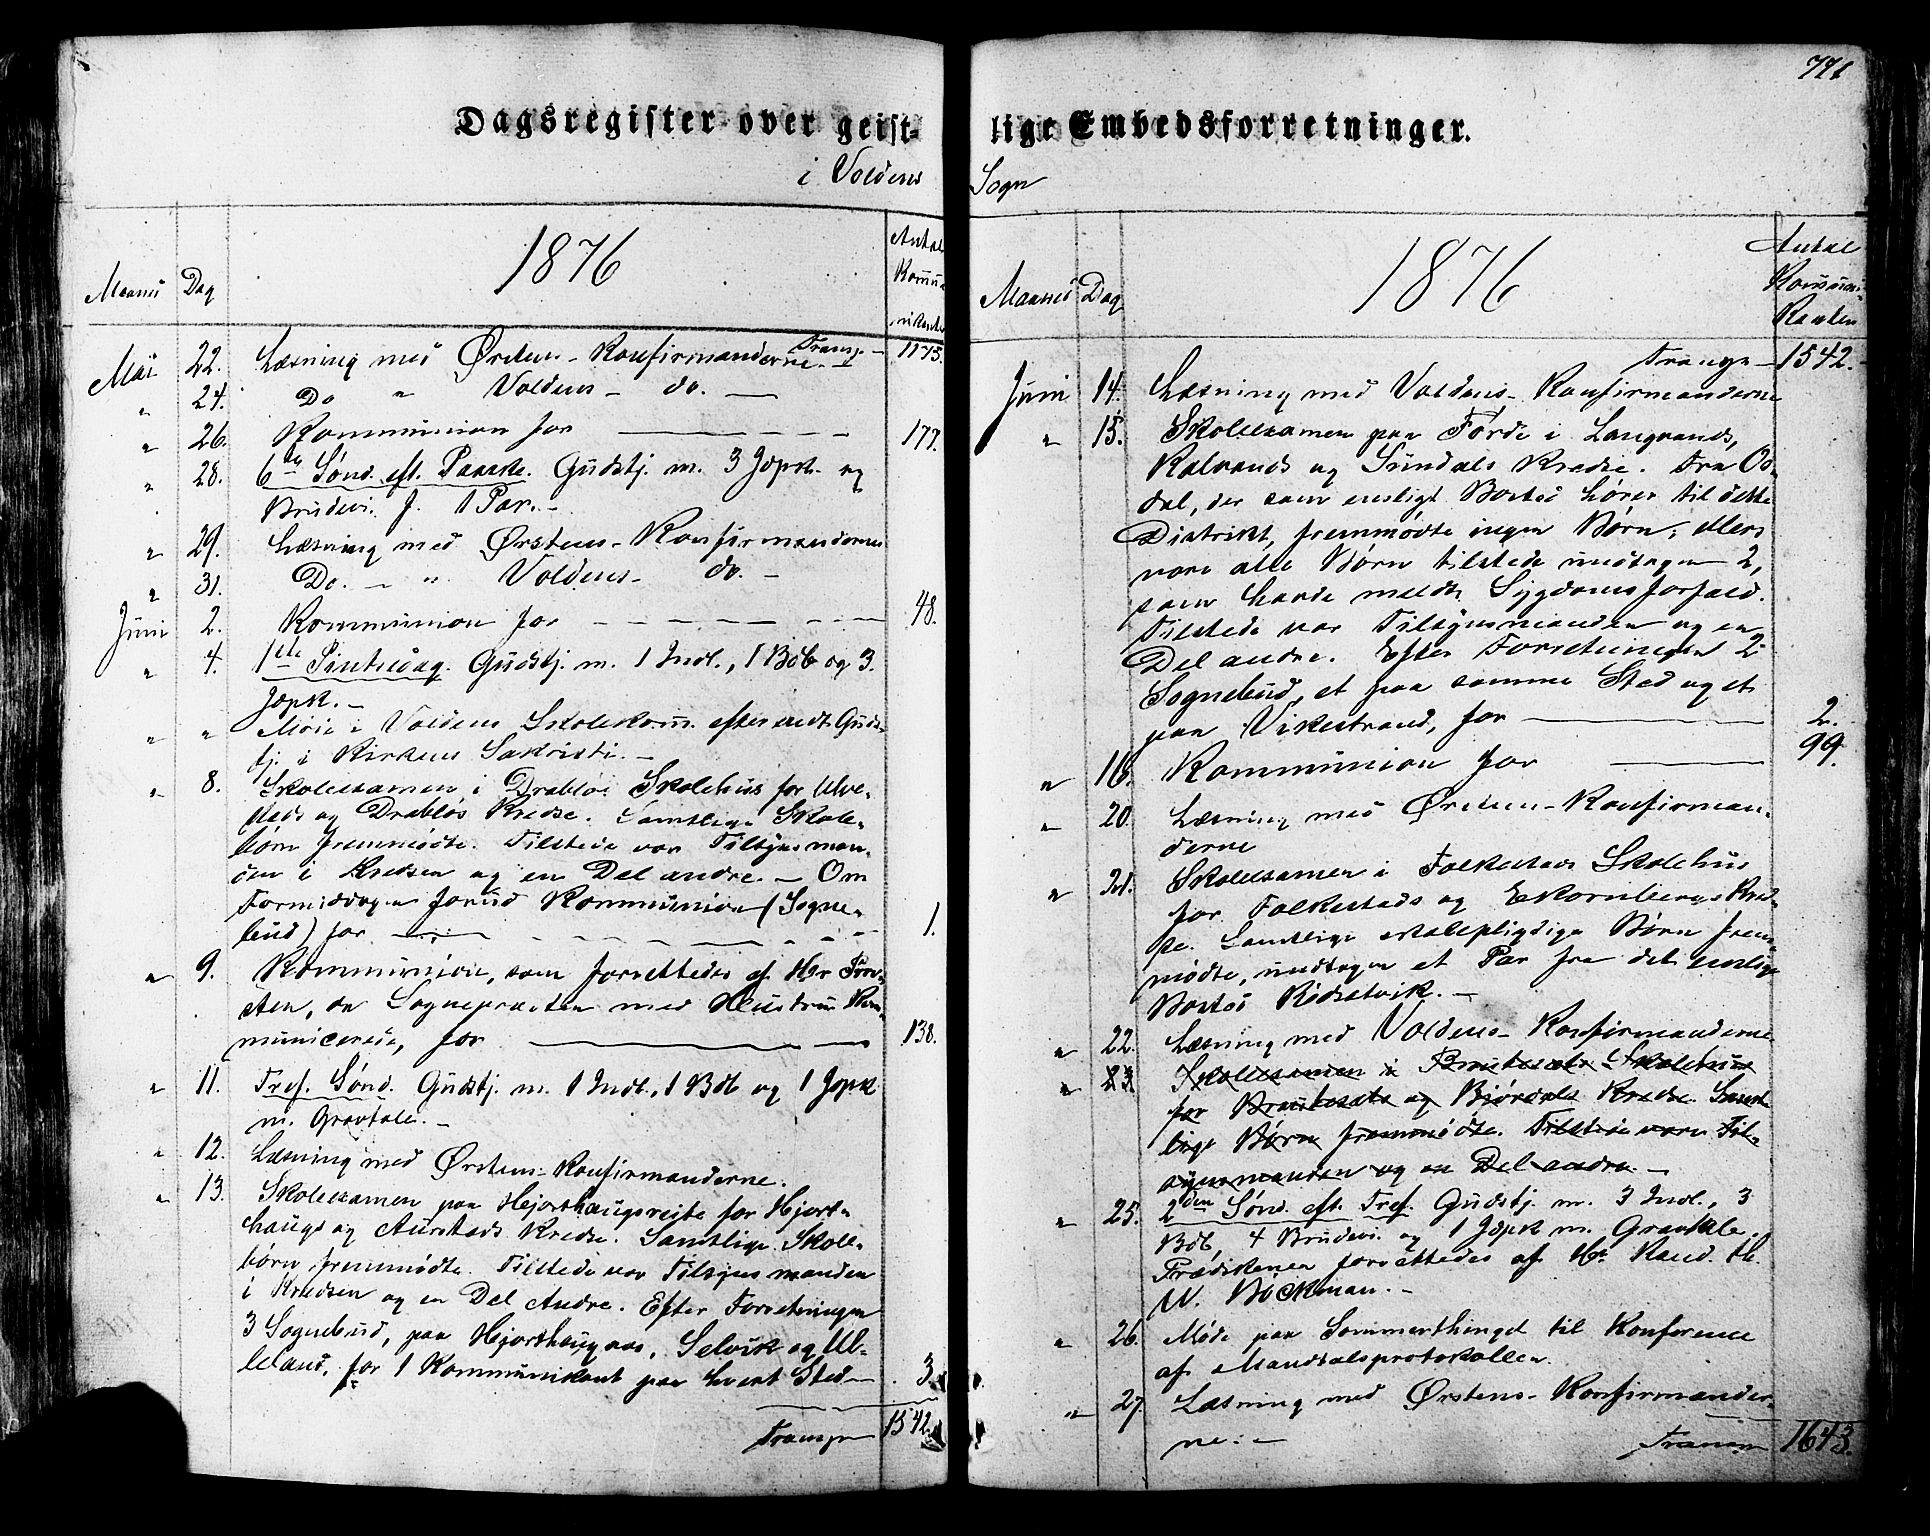 771
Dagsregister over geist-
lige Embedsforretninger.
i Voldens
Sogn
Maaned Dag 1876 Antal Kommunikanter
Mai 22. Læsning med Ørstens-Konfirmanderne. Transp. 1175.
" 24. Do " Voldens - do. —
" 26. Kommunion for — 177.
" 28. 6te Sønd. eft. Paaske. Gudstj. m. 3 Jopk. og
Brudevi. f. 1 Par. -
" 29. Læsning med Ørstens-Konfirmanderne
" 31. Do. - " Voldens - do. -
Juni 2. Kommunion for - - - 48.
" 4. 1ste Pintsedag. Gudstj. m. 1 Indl., 1 Bdb og 3
Jopk. -
" " Møde i Voldens Skolekom. efter endt Guds-
tj. i Kirkens Sakristi. -
" 8. Skolexamen i Drabløs Skolehus for Ulve-
stads og Drabløs Kredse. Samtlige Skole-
børn fremmødte. Tilstede var Tilsynsman-
den i Kredsen og en Del andre. - Om
Formiddagen forud Kommunion (Sogne-
bud) for - - - 1.
" 9. Kommunion, som forrettedes af Hr Prov-
sten, da Sognepræsten med Hustru Kom-
municerede, for — 138.
" 11. Tref. Sønd. Gudstj. m. 1 Indl., 1 Bdb og 1 Jopk
m. Gravtale. -
" 12. Læsning med Ørstens-Konfirmanderne.
" 13. Skolexamen paa Hjorthaugsreite for Hjort-
haugs og Aurstads Kredse. Samtlige Skole-
børn fremmødte. Tilstede var Tilsynsmanden
i Kredsen og en Del Andre. Efter Forretningen
3 Sognebud, paa Hjorthaugnæs, Selvik og Ul-
leland, for 1 Kommunikant paa hvert Sted - 3
Transp 1542.
Maaned Dag 1876 Antal Kommunikanter
Transp - 1542.
Juni 14. Læsning med Voldens-Konfirmanderne
" 15. Skolexamen paa Førde i Langvands,
Kalvands og Sundals Kredse. Fra Os-
dal, der som ensligt Bosted hører til dette
Distrikt, fremmødte ingen Børn; ellers
vare alle Børn tilstede undtagen 2,
som havde meldt Sygdomsforfald.
Tilstede var Tilsynsmanden og en
Del andre. Efter Forretningen 2
Sognebud, et paa samme Sted og et
paa Vikestrand, for — 2.
" 16. Kommunion for — 99.
" 20. Læsning med Ørstens-Konfirman-
derne
" 21. Skolexamen i Folkestads Skolehus
for Folkestads og Ekornbergs Kred-
se. Samtlige skolepligtige Børn frem-
mødte, undtagen et Par fra det enslige
Bosted Rødsetvik. -
" 22. Læsning med Voldens-Konfirmanderne
" 23 Skolexamen i Brautesets Skolehus
for Brautesets og Bjørdals Kredse. Samt-
lige Børn fremmødte. Tilstede vare Til-
synsmanden og en Del andre. -
" 25. 2den Sønd. eft. Tref. Gudstj. m. 3 Indl., 3
Bdb, 4 Brudevi. og 1 Jopk m. Gravtale.
Prædikenen forrettedes af Hr. Kand. th.
W. Böckman. -
" 26. Møde paa Sommerthinget til Konference
af Mandtalsprotokollen.
" 27. Læsning med Ørstens-Konfirmander-
ne. - Transp 1643.